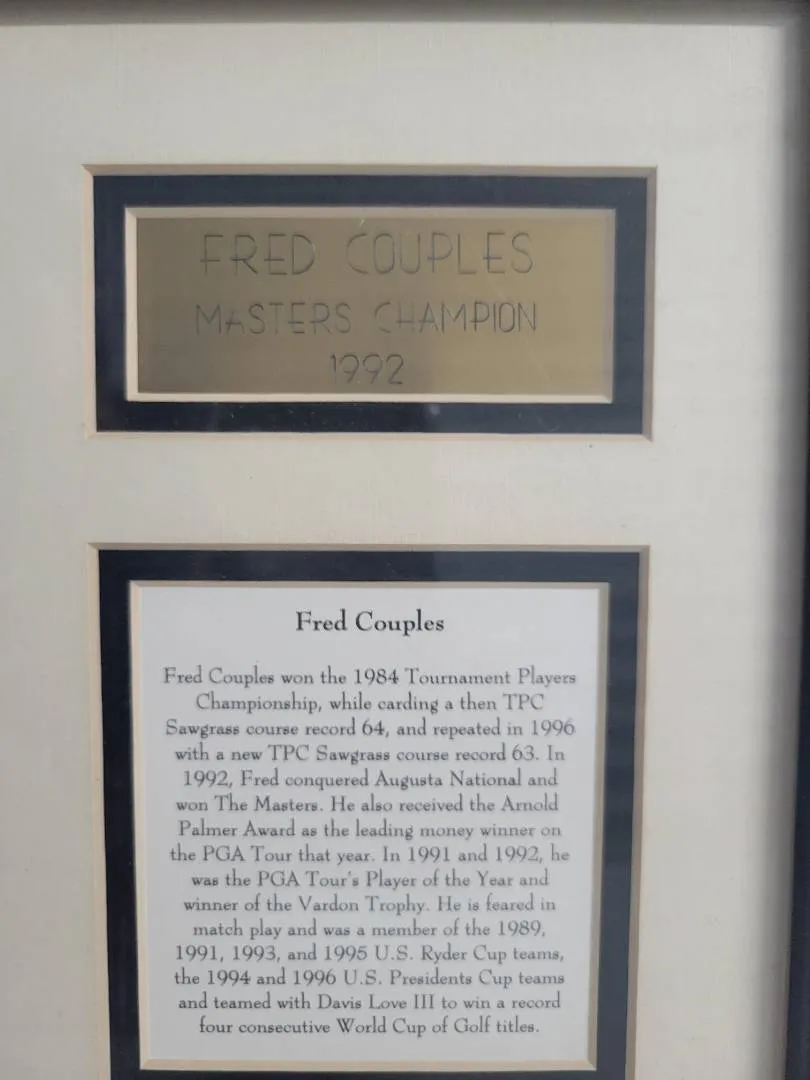 FRED COUPLES
MASTERS CHAMPION
1992
Fred Couples
Fred Couples won the 1984 Tournament Players
Championship, while carding a then TPC
Sawgrass course record 64, and repeated in 1996
with a new TPC Sawgrass course record 63. In
1992, Fred conquered Augusta National and
won The Masters. He also received the Arnold
Palmer Award as the leading money winner on
the PGA Tour that year. In 1991 and 1992, he
was the PGA Tour's Player of the Year and
winner of the Vardon Trophy. He is feared in
match play and was a member of the 1989,
1991, 1993, and 1995 U.S. Ryder Cup teams,
the 1994 and 1996 U.S. Presidents Cup teams
and teamed with Davis Love III to win a record
four consecutive World Cup of Golf titles.